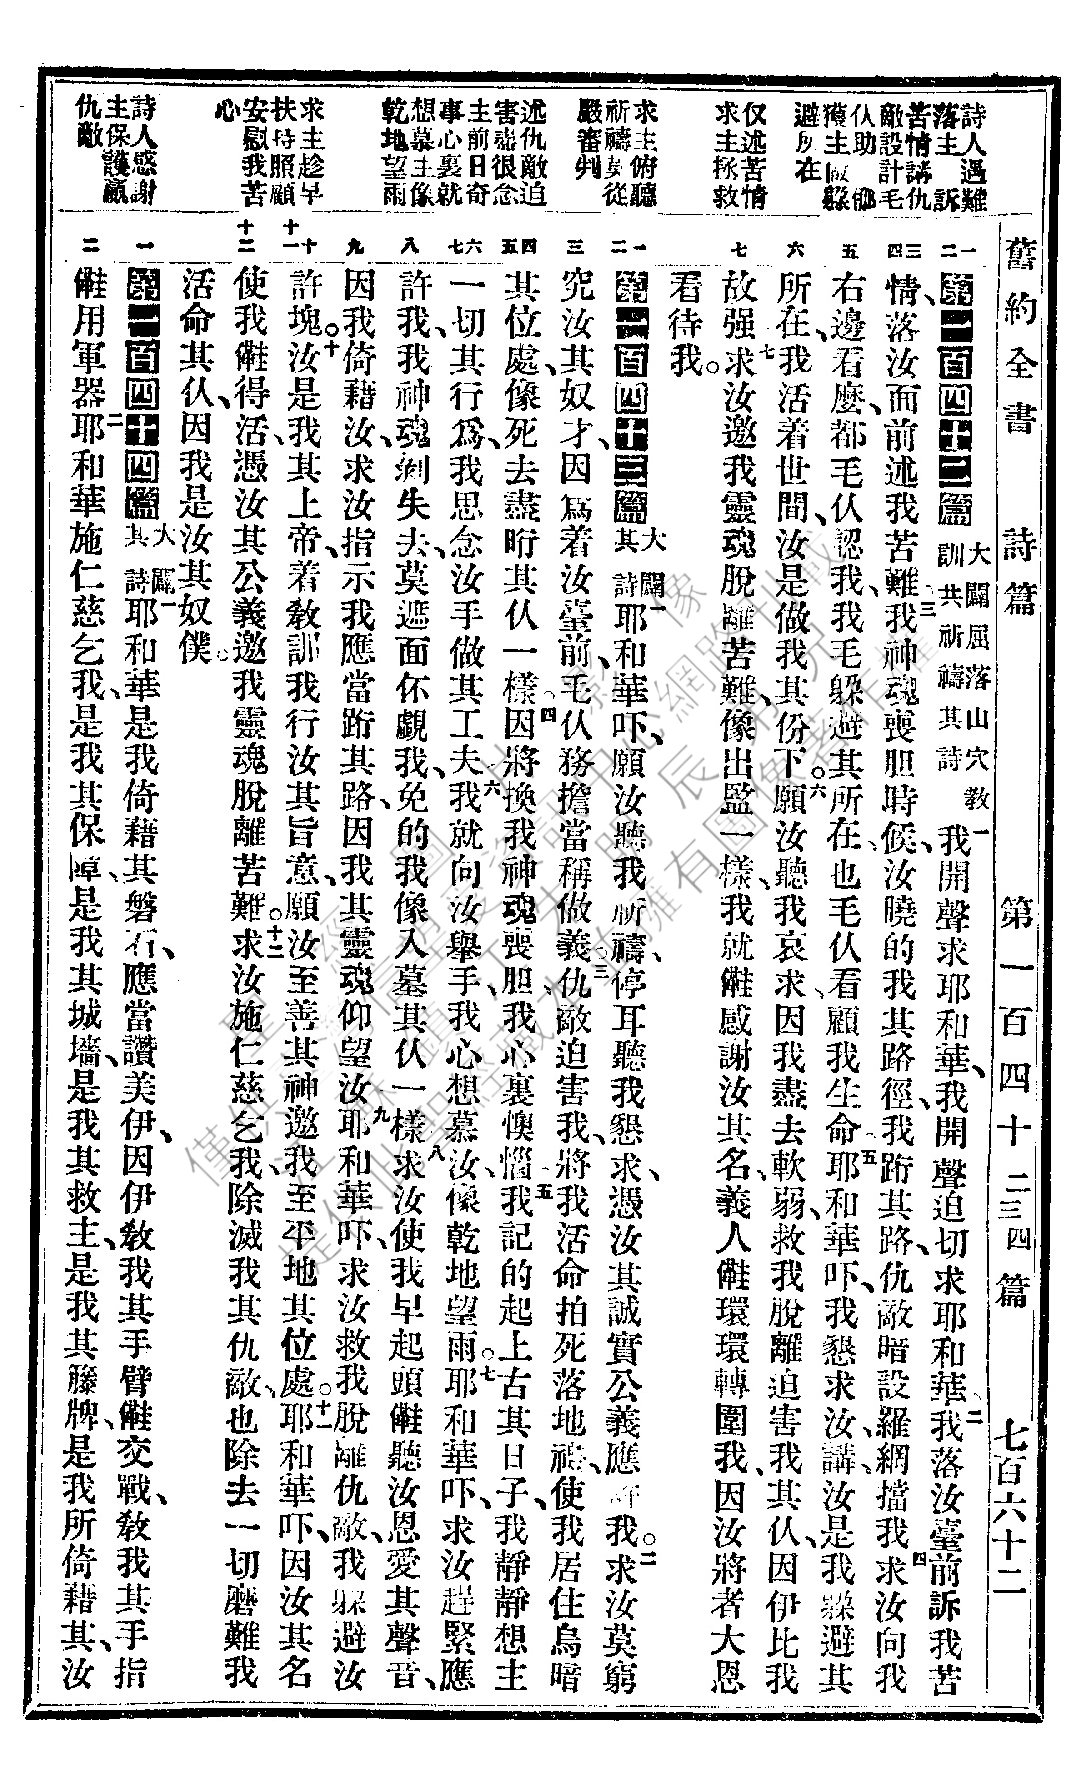 舊約全書　詩篇　第一百四十二三四篇　七百六十二
詩人遇難
落主　訴
苦情講仇
敵設計毛
仅助　郷
獲主　躲
避所在
仅述苦情
求主拯救
求主俯聽
祈禱莫從
嚴審判
述仇敵追
害盡很念
主前日奇
事心裏就
想慕主像
乾地望雨
求主趁早
扶持照顧
安慰我苦
心
詩人感謝
主保護贏
仇敵
一二　第一百四十二篇　大闢屈落山穴教訓共祈禱其詩　一我開聲求耶和華、我開聲迫切求耶和華、二我落汝臺前訴我苦
三四　情、落汝面前述我苦難、三我神魂喪胆時候、汝曉的我其路徑、我跨其路、仇敵暗設羅網擋我、四求汝向我
五　右邊看麼、都毛仅認我、我毛躲避其所在、也毛仅看顧我生命、五耶和華吓、我懇求汝、講、汝是我躲避其
六　所在、我活着世間、汝是做我其份下。六願汝聽我哀求、因我盡去軟弱、救我脫離迫害我其仅、因伊比我
七　故强、七求汝邀我靈魂脫離苦難、像出監一樣、我就𠆧感謝汝其名、義人𠆧環環轉圍我、因汝將者大恩
看待我。
一二　第一百四十三篇　大闢其詩　一耶和華吓、願汝聽我祈禱、停耳聽我懇求、憑汝其誠實公義、應許我。二求汝莫窮
三　究汝其奴才、因爲着汝臺前、毛仅務擔當稱做義、三仇敵迫害我、將我活命拍死落地裡、使我居住烏暗
四五　其位處、像死去盡盺其仅一樣。四因將換我神魂喪胆、我心裏懊惱、五我記的起上古其日子、我靜靜想主
六七　一切其行爲、我思念汝手做其工夫、六我就向汝舉手、我心想慕汝、像乾地望雨。七耶和華吓、求汝趕緊應
八　許我、我神魂剿失去、莫遮面伓覷我、免的我像入墓其仅一樣、八求汝使我早起頭𠆧聽汝恩愛其聲音、
九　因我倚藉汝、求汝指示我應當跨其路、因我其靈魂仰望汝、九耶和華吓、求汝救我脫離仇敵、我躲避汝
十十一　許塊。十汝是我其上帝、着教訓我行汝其旨意、願汝至善其神、邀我至平地其位處。十一耶和華吓、因汝其名
十二　使我𠆧得活、憑汝其公義邀我靈魂脫離苦難。十二求汝施仁慈乞我、除滅我其仇敵、也除去一切磨難我
活命其仅、因我是汝其奴僕。
一　第一百四十四篇　大闢其詩　一耶和華是我倚藉其磐石、應當讚美伊、因伊教我其手臂𠆧交戰、教我其手指
二　𠆧用軍器、二耶和華施仁慈乞我、是我其保障、是我其城墻、是我其救主、是我其籐牌、是我所倚藉其、汝